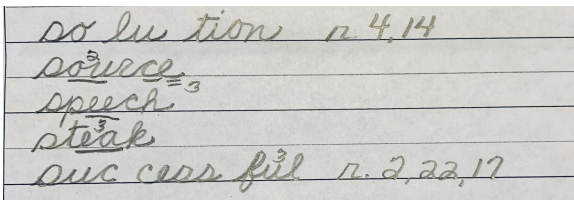 so lu tion r. 4, 14
source
speech
steak
suc cess ful r. 2, 22, 17